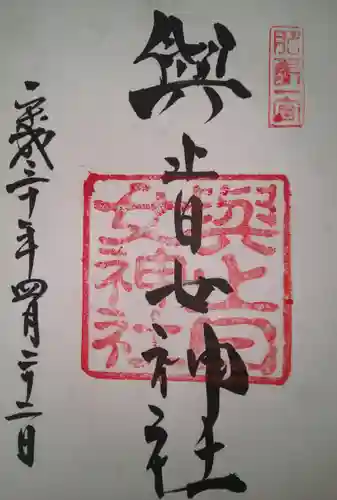 肥前一宮
與止日女神社
與止日
女神社
平成三十年四月二十二日